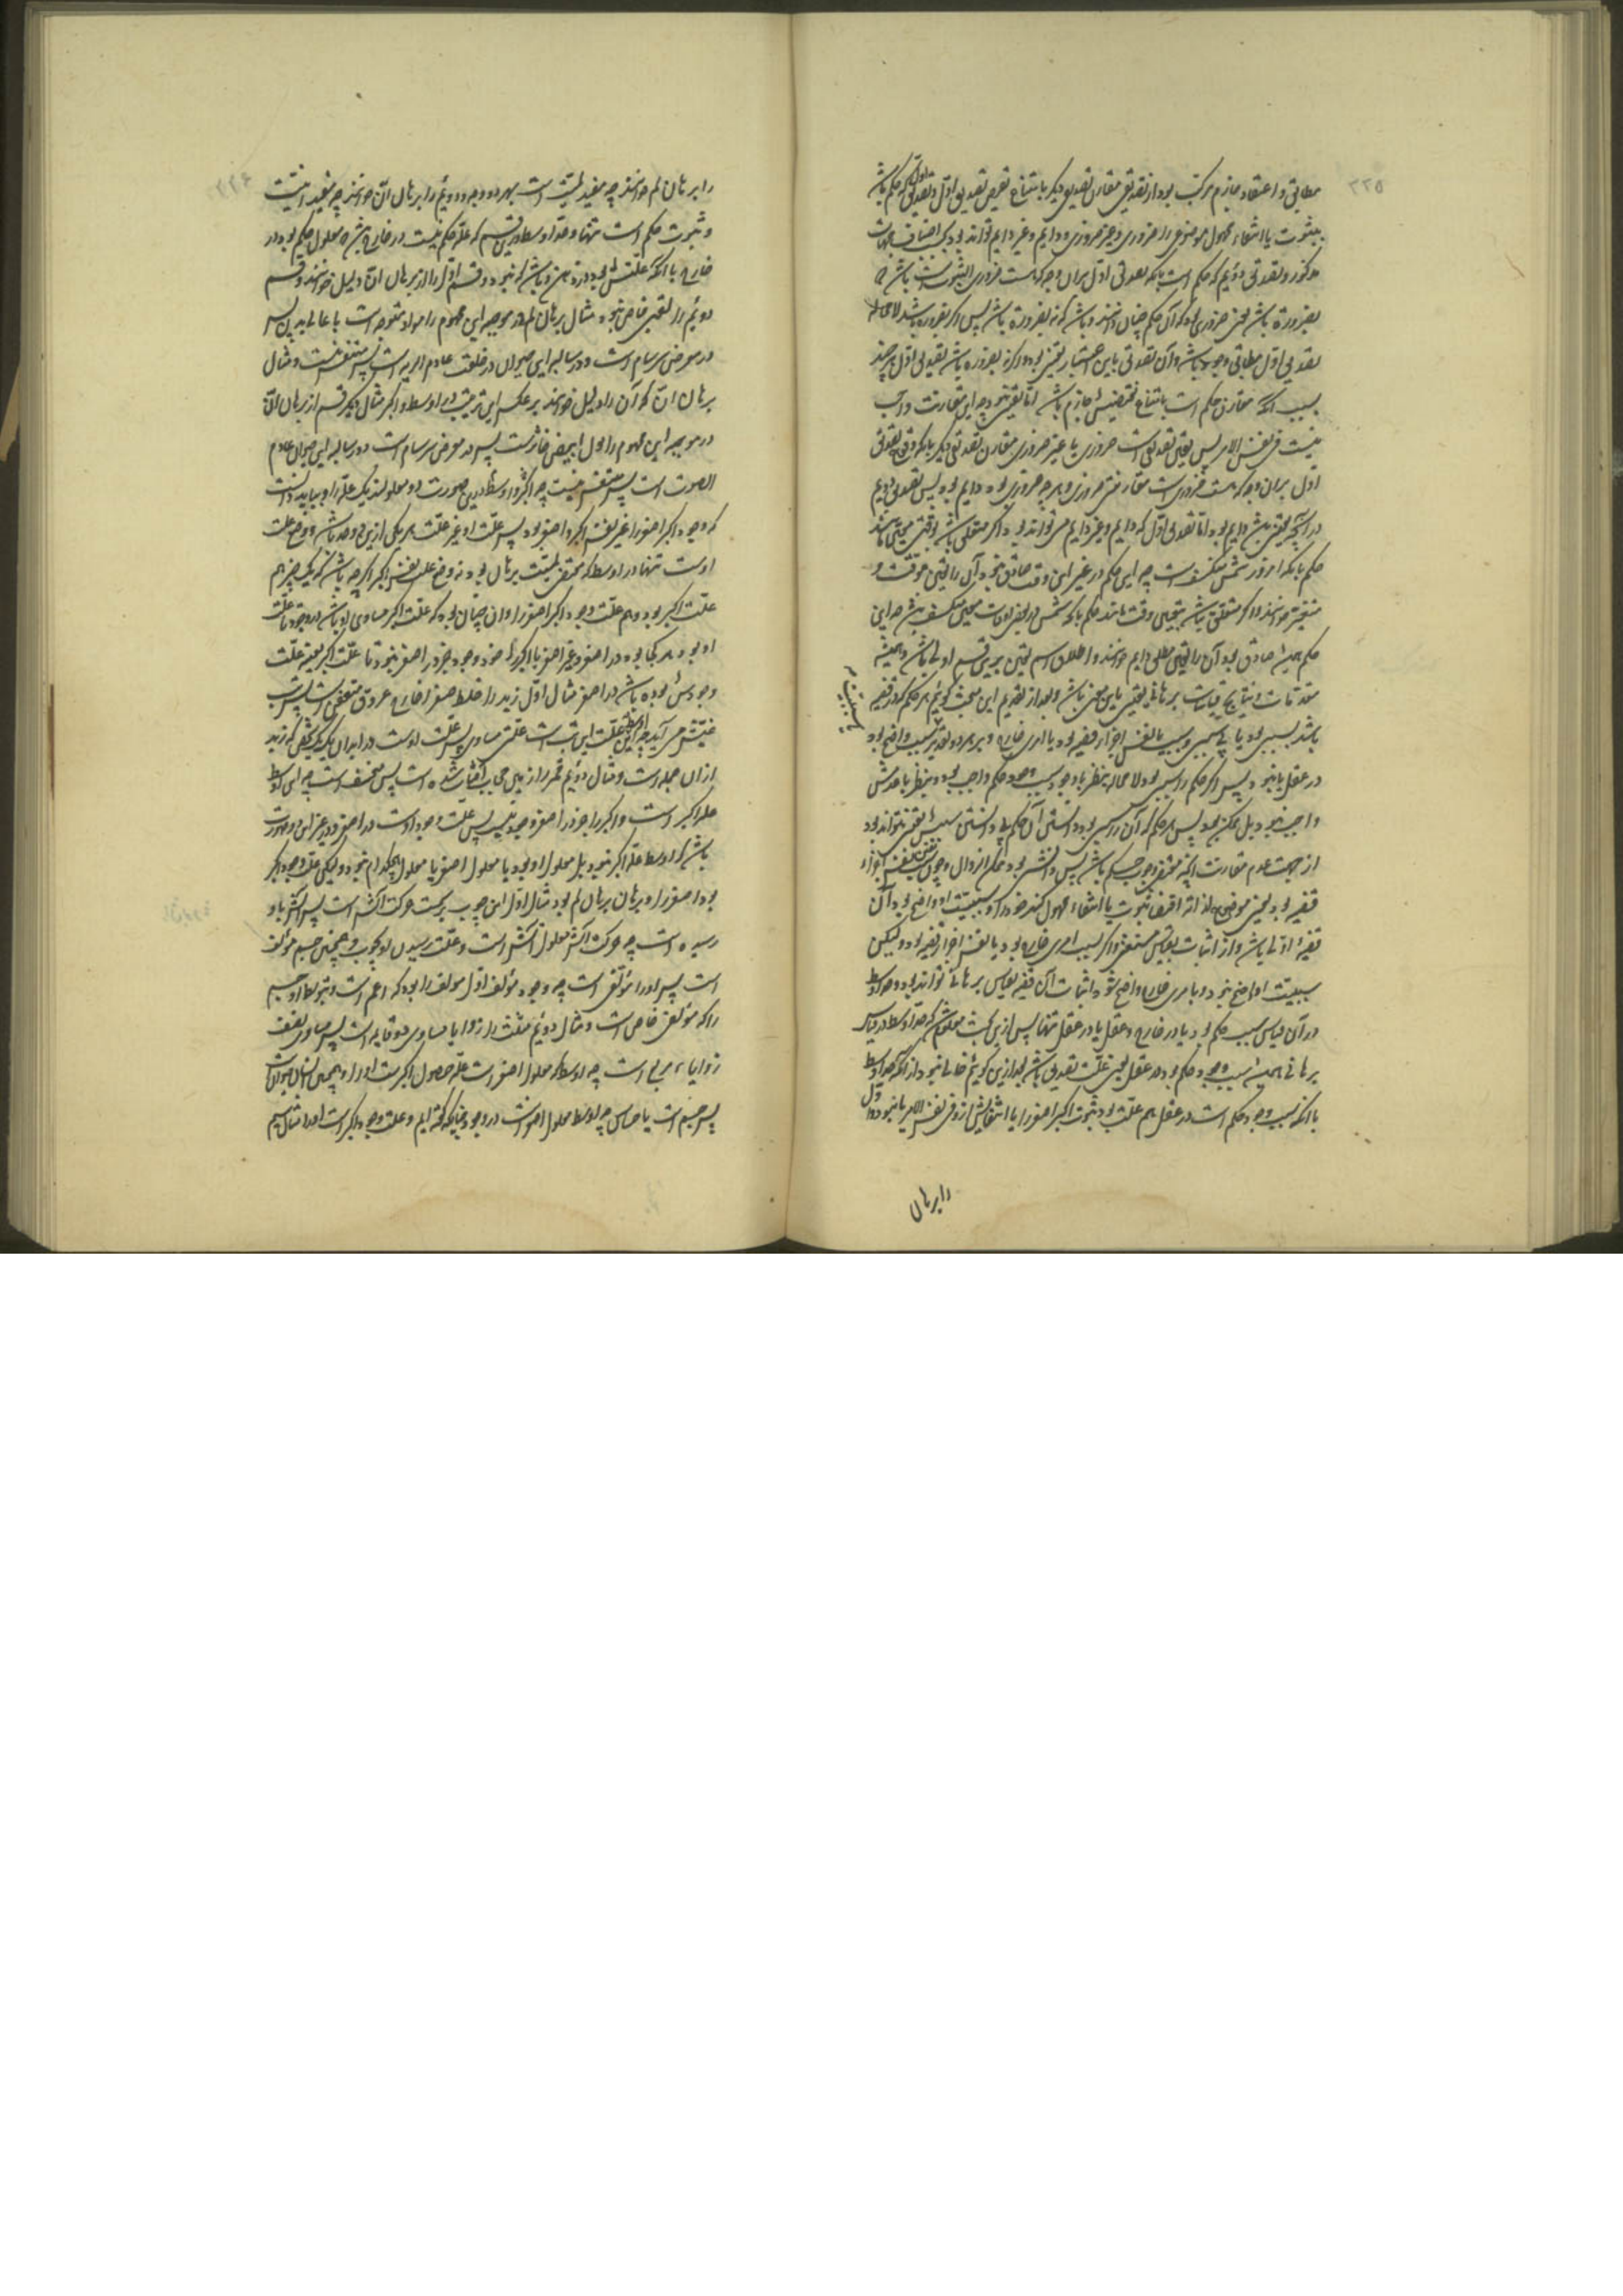 مطابق و اعتقاد جازم مرکب بود از تصدیقی مقارن تصدیق دیگر بامتناع نقیض تصدیق اول و تصدیق اول که حکم باشد
بثبوت یا انتفاء محمول موضوع را ضروری و غیر ضروری و دایم و غیر دایم تواند بود بحسب اختلاف جهات
مذکور و تصدیق دوئیم که حکم است بانکه تصدیق اول بران وجه که هست ضروری الثبوت باشد
بضرورة باشد یعنی ضروری بود که آن حکم چنان دانند و باشد که نه بضرورة باشد پس اگر بضرورة باشد لامحاله
تصدیق اول مطابق وجود باشد و آن تصدیق باین اعتبار یقینی بود و اگر نه بضرورة باشد تصدیق اول هرچند
بسبب آنکه مقارن حکم است بامتناع نقیضش جازم باشد اما یقینی نبود چه این مقارنت واجب
نیست فی نفس الامر پس یقین تصدیقی است ضروری یا غیر ضروری مقارن تصدیقی دیگر بانکه وقوع تصدیق
اول بران وجه که هست ضروری است مقارنتی ضروری و هر چه ضروری بود دایم بود پس تصدیق دویم
در آنچه یقینی باشد دایم بود اما تصدیق اول که دایم و غیر دایم می تواند بود اگر متعلق باشد بوقتی معین مانند
حکم بانکه امروز شمس منکسف است چه این حکم در غیر این وقت صادق نبود آن را یقین موقت و
متغیر خوانند و اگر متعلق باشد بتعین وقت مانند حکم بانکه شمس در بعض اوقات معین منکسف باشد چه این
حکم همیشه صادق بود آن را یقین مطلق دایم خوانند و اطلاق اسم یقین برین قسم اولی باشد و همیشه
مقدمات و نتایج قیاسات برهانی یقینی باین معنی باشد و بعد از تقدیم این مبحث گوئیم هر حکم که در قضیه
باشد بسببی بود یا بی سببی و سبب یا نفس اجزاء قضیه بود یا امری خارج و بر هر دو تقدیر سبب واضح بود
در عقل یا نبود پس اگر حکم را سببی بود لامحاله بنظر با وجود سبب وجود حکم واجب بود و بنظر با عدمش
واجب نبود بل ممکن بود پس هر حکم که آن را سببی بود دانستن آن حکم بی دانستن سببش یقینی نتواند بود
از جهت عدم مقارنت آنچه مقتضی وجوب حکم باشد پس دانشش بود ممکن الزوال و چون سبب نفس اجزاء
قضیه بود یعنی موضوع لذاته اقتضاء ثبوت یا انتفاء محمول کند خود را و سببیت او واضح بود آن
قضیه اولی باشد و از اثبات بقیاس مستغنی و اگر سبب امری خارج بود یا نفس اجزاء قضیه بود و لیکن
سببیت او واضح نبود و بامری خارج واضح شود اثبات آن قضیه بقیاس برهانی تواند بود و حد اوسط
در آن قیاس سبب حکم بود یا در خارج و عقل یا در عقل تنها پس ازین بحث معلوم شد که حد اوسط در قیاس
برهانی همیشه سبب وجود حکم بود در عقل یعنی علت تصدیق باشد بعد ازین گوئیم خالی نبود از آنکه حد اوسط
با آنکه سبب وجود حکم است در عقل هم علت بود ثبوت اکبر اصغر را یا انتفایش ازو فی نفس الامر یا نبود و اول
را برهان
را برهان لم خوانند چه مفید لمیت است بهر دو وجه و دوئیم را برهان ان خوانند چه مفید انیت
و ثبوت حکم است تنها و حد اوسط درین قسم که علة حکم نیست در خارج باشد که معلول حکم بود در
خارج با آنکه علتش بود در ذهن و باشد که نبود و قسم اول را از برهان ان دلیل خوانند و قسم
دوئیم را لقبی خاص نبود مثال برهان لم در موجبه این محموم را مواد متوجه است با عالی بدن پس
در معرض سرسام است و در سالبه این حیوان در خلقت عادم الریه است پس متنفس نیست و مثال
برهان ان که آن را دلیل خوانند بر عکس این ترتیب در اوسط و اکبر مثال دیگر قسم از برهان ان
در موجبه این محموم را بول ابیض خاثر است پس در معرض سرسام است و در سالبه این حیوان عادم
الصوت است پس متنفس نیست چه اکبر و اوسط درین صورت دو معلولند یک علة را و بباید دانست
که وجود اکبر اصغر را غیر نفس اکبر و اصغر بود پس علت او غیر علت هر یکی ازین دو حد باشد و وضع علت
اوست تنها در اوسط که مقتضی لمیت برهان بود نه وضع علت نفس اکبر اگرچه باشد که یک چیز هم
علت اکبر بود و هم علت وجود اکبر اصغر را و آن چنان بود که علت اکبر مساوی او باشد در وجود تا علت
او بود هر کجا بود در اصغر و غیر اصغر یا اکبر را خود وجود جز در اصغر نبود تا علت اکبر بعینه علت
وجودش بوده باشد در اصغر مثال اول زید را خلط صفرا خارج عروق متعفن است پس تب
غبش می آید چه این اوسط علت این تب است علتی مساوی پس علت اوست در ابدان یک یک شخص که زید
از ان جمله است و مثال دوئیم قمر را زمین حجاب آفتاب شده است پس منخسف است چه این اوسط
علة اکبر است و اکبر را جز در اصغر وجود نیست پس علت وجود اوست در اصغر و در غیر این دو صورت
باشد که اوسط علة اکبر نبود بل معلول او بود یا معلول اصغر یا معلول هیچکدام نبود و لیکن علت وجود اکبر
بود اصغر را و برهان برهان لم بود مثال اول این چوب بر سمت حرکت آتش است پس آتش باو
رسیده است چه حرکت آتش معلول آتش است و علت رسیدن او بچوب و همچنین جسم مؤلف
است پس او را مؤلفی است چه وجود مؤلف اول مؤلف را بود که اعم است و بتوسط او جسم
را که مؤلفی خاص است و مثال دوئیم مثلث را زوایا مساوی دو قایمه است پس مساوی نصف
زوایاء مربع است چه اوسط که معلول اصغر است علة حصول اکبرست او را و همچنین انسان حیوان است
پس جسم است یا حساس چه اوسط معلول اصغر است در وجود چنانکه گفته ایم و علت وجود اکبر است او را مثال سیم